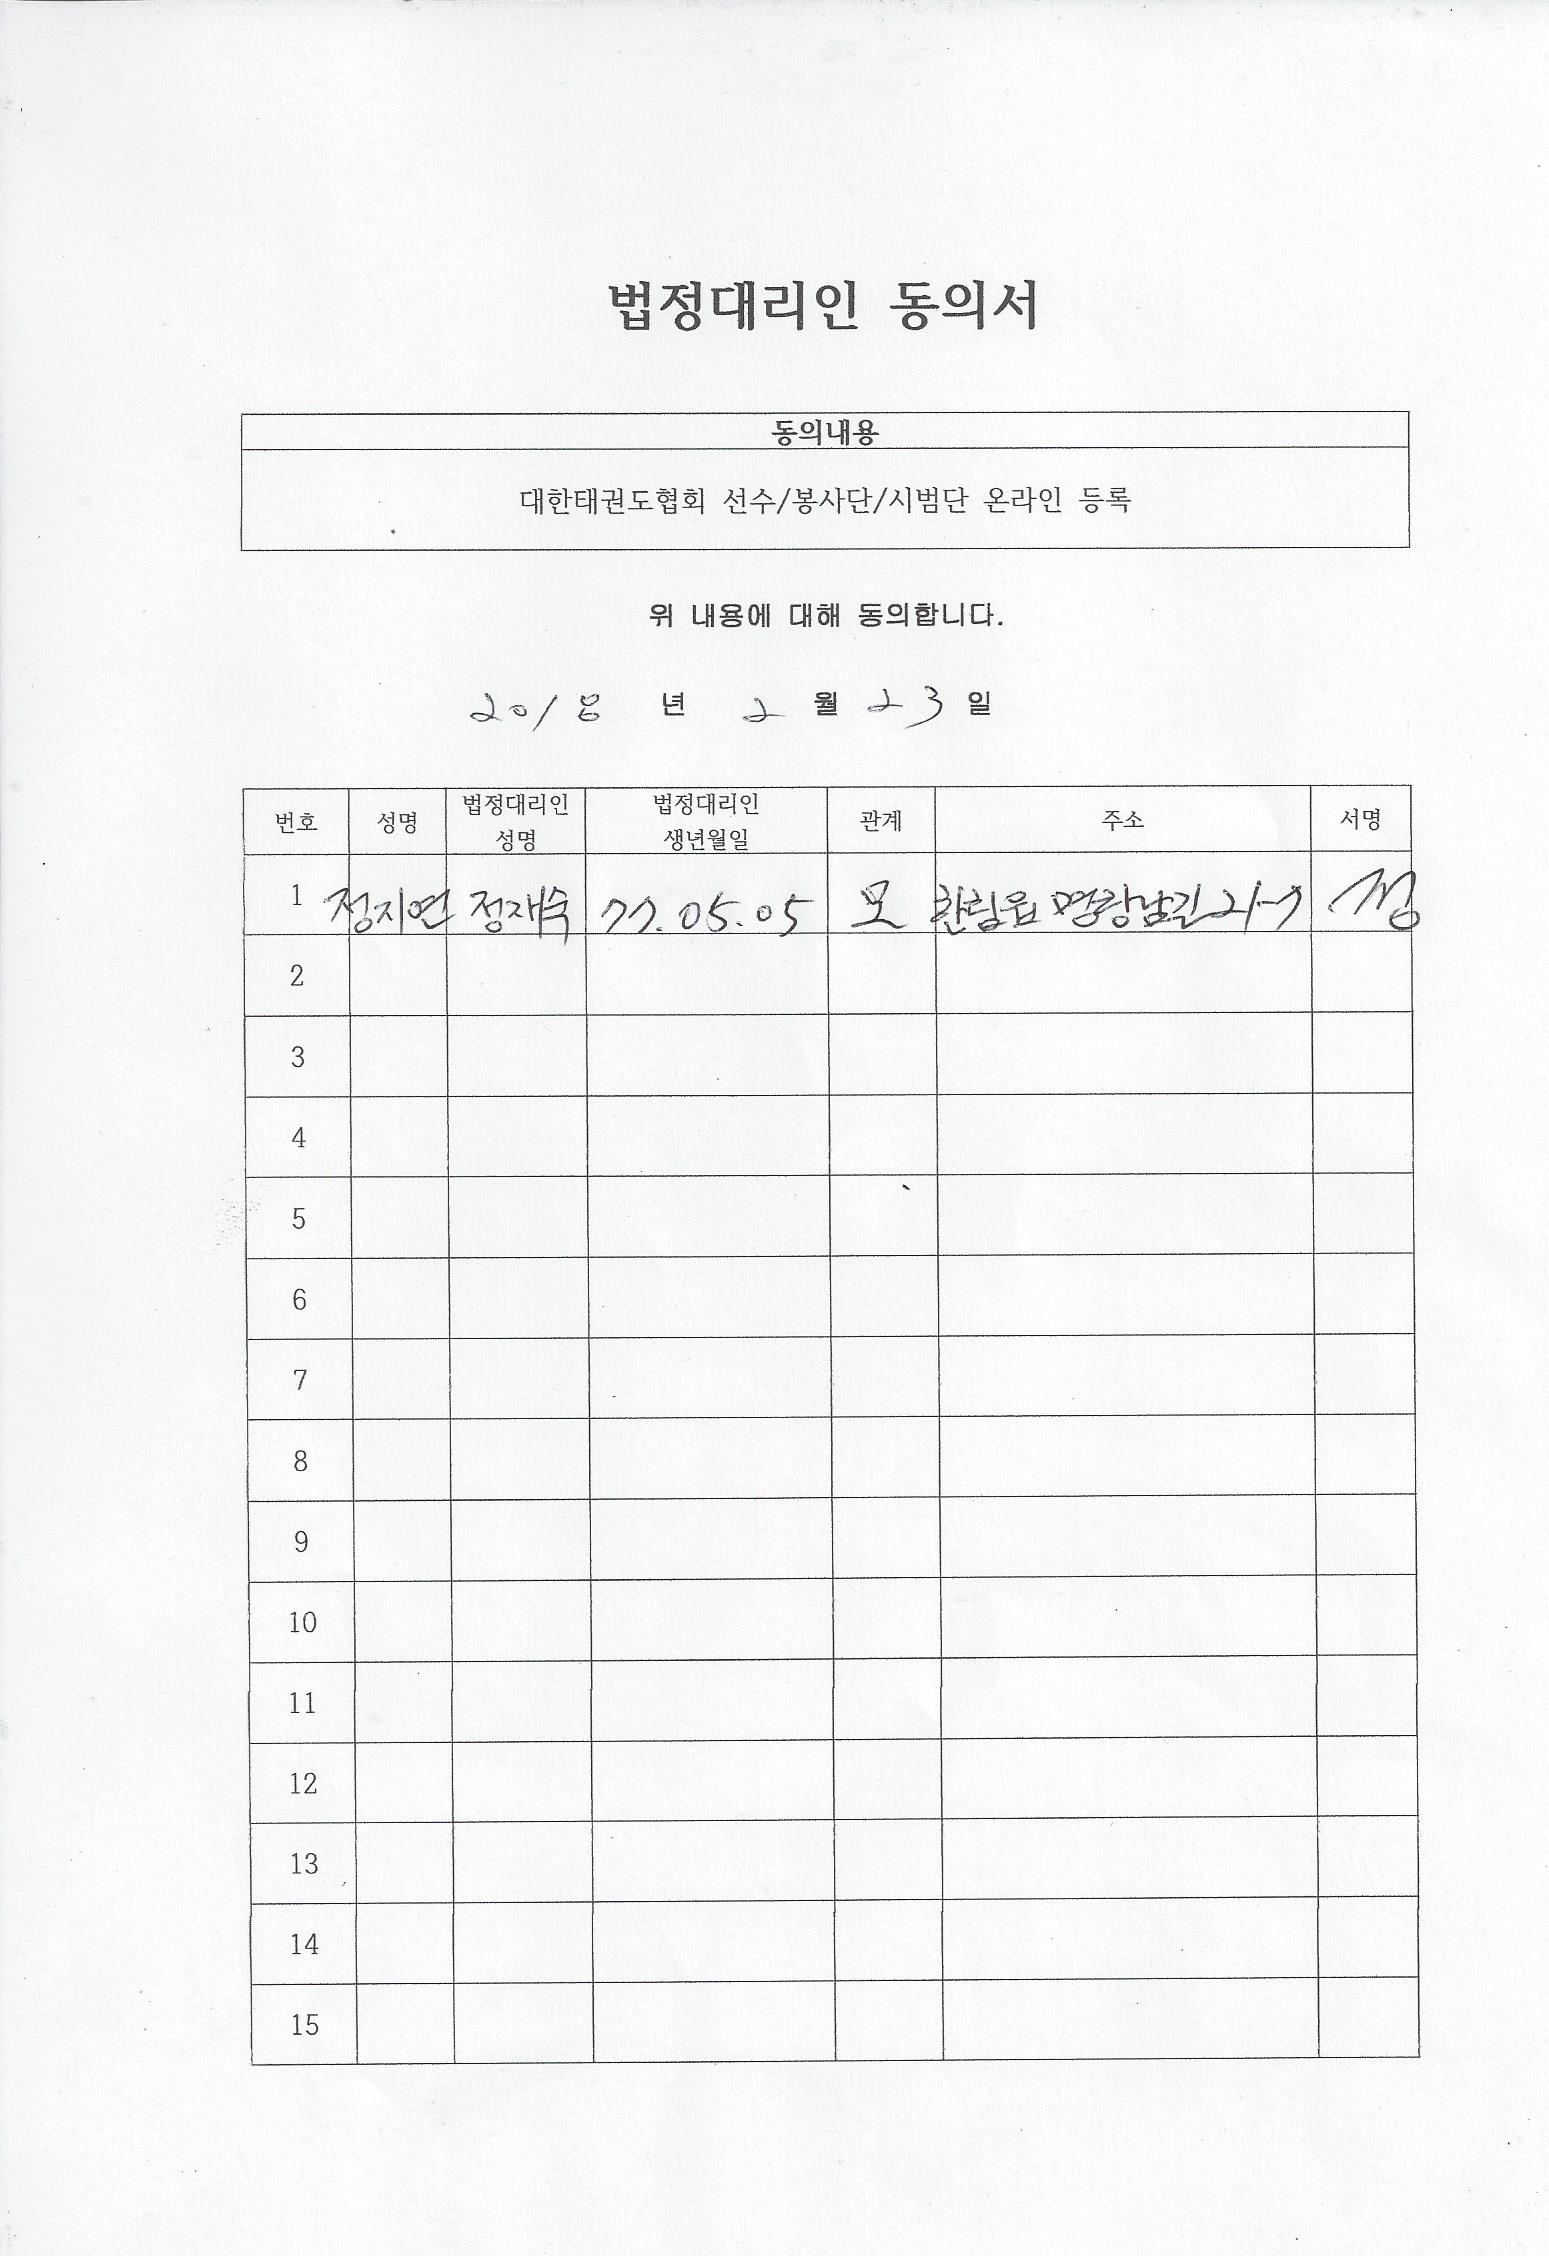 법정대리인 동의서
동의내용
대한태권도협회 선수/봉사단/시범단 온라인 등록
위 내용에 대해 동의합니다.
2018 년 2 월 23 일
번호 성명 법정대리인 성명 법정대리인 생년월일 관계 주소 서명
1 정지연 정재숙 77.05.05 모 한림읍 명랑남길 21-7 정
2
3
4
5
6
7
8
9
10
11
12
13
14
15